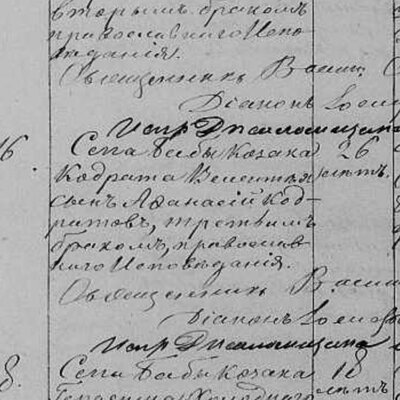 вторымъ бракомъ,
православнаго Испо-
вѣданія.
Священникъ Васил
Діаконъ Іоан
16. Села Бабы козака 26
Кодрата Велентья лѣтъ.
сынъ Аѳанасій Код-
ратовъ, третьимъ
бракомъ, православ-
наго Исповѣданія.
Священникъ Васил
Діаконъ Іоанъ
8. Села Бабы козака 18
лѣтъ